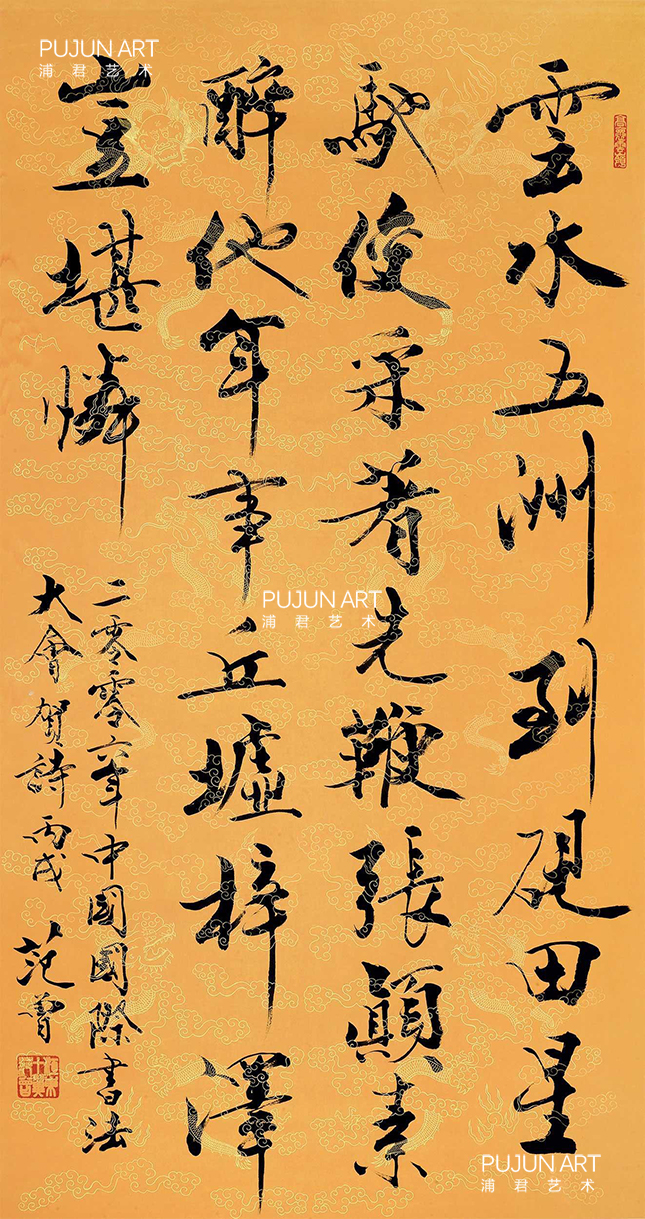 雲水五洲到硯田星
馳俊采着先鞭張顛素
醉他年事丘墟梓澤
豈堪憐
二零零六年中國國際書法
大會賀詩丙戌范曾
PUJUN ART
浦君艺术
PUJUN ART
浦君艺术
PUJUN ART
浦君艺术